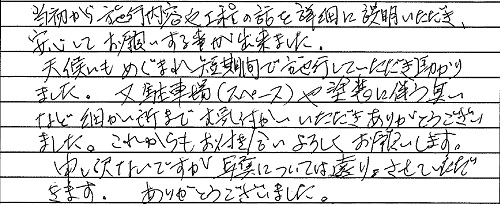 当初から施行内容や工程の話を詳細に説明いただき、
安心してお願いする事が出来ました。
天候にもめぐまれ短期間で施行していただき助かり
ました。又駐車場(スペース)や塗装に伴う臭い
など細かい所までお気付かいいただきありがとうござい
ました。これからもお付き合いよろしくお願いします。
申し訳ないですが写真については遠りょさせていただ
きます。ありがとうございました。